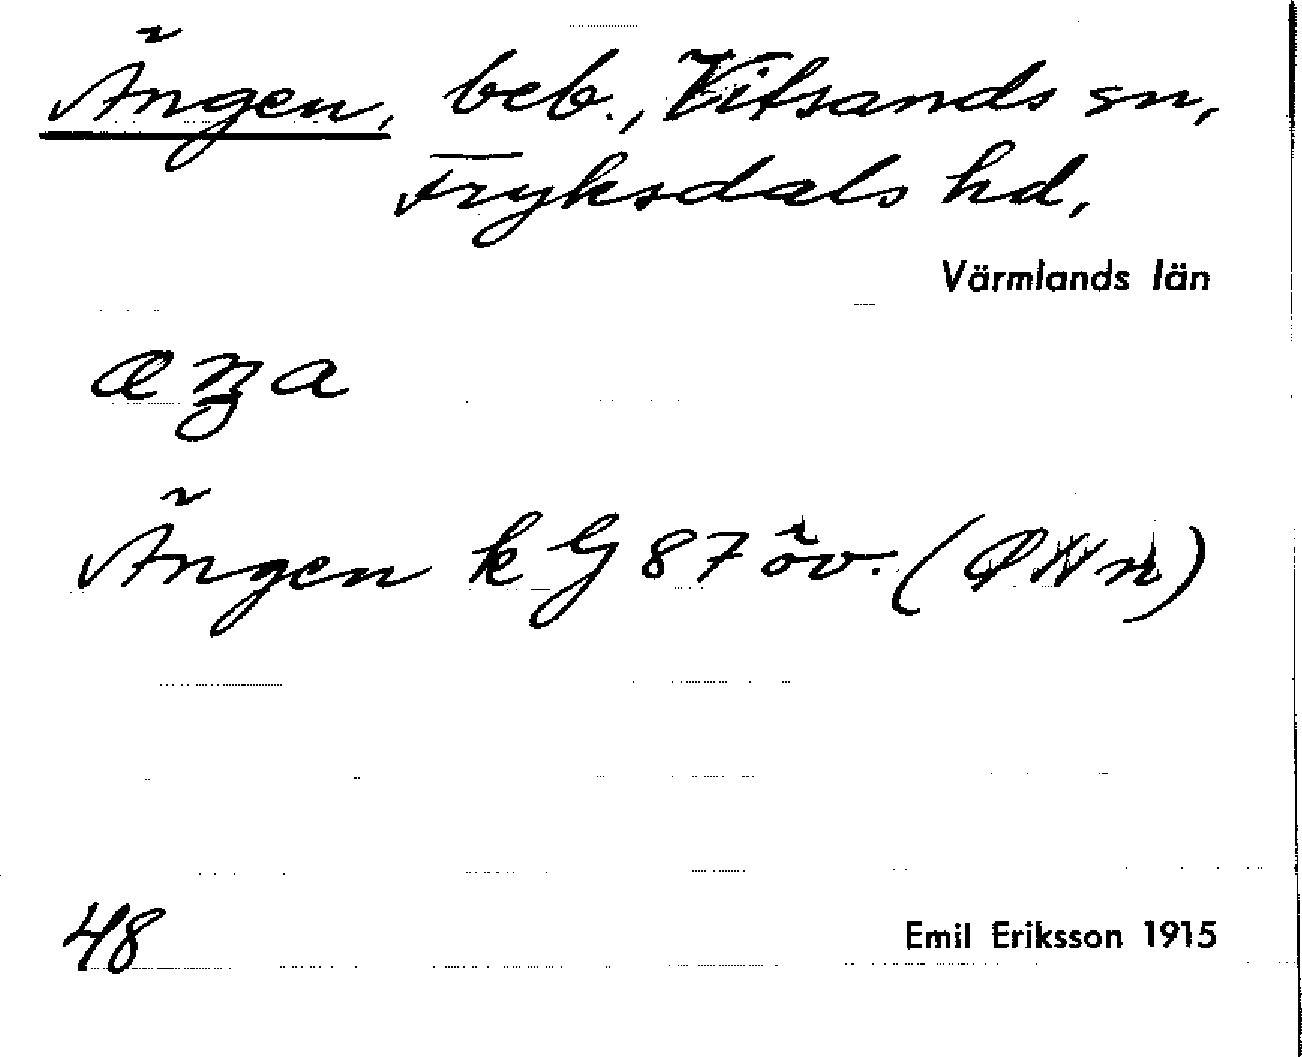 Ängen, beb., Vitsands sn,
Fryksdals hd,
Värmlands län
Ängen k G 87 öv.
48
Emil Eriksson 1915